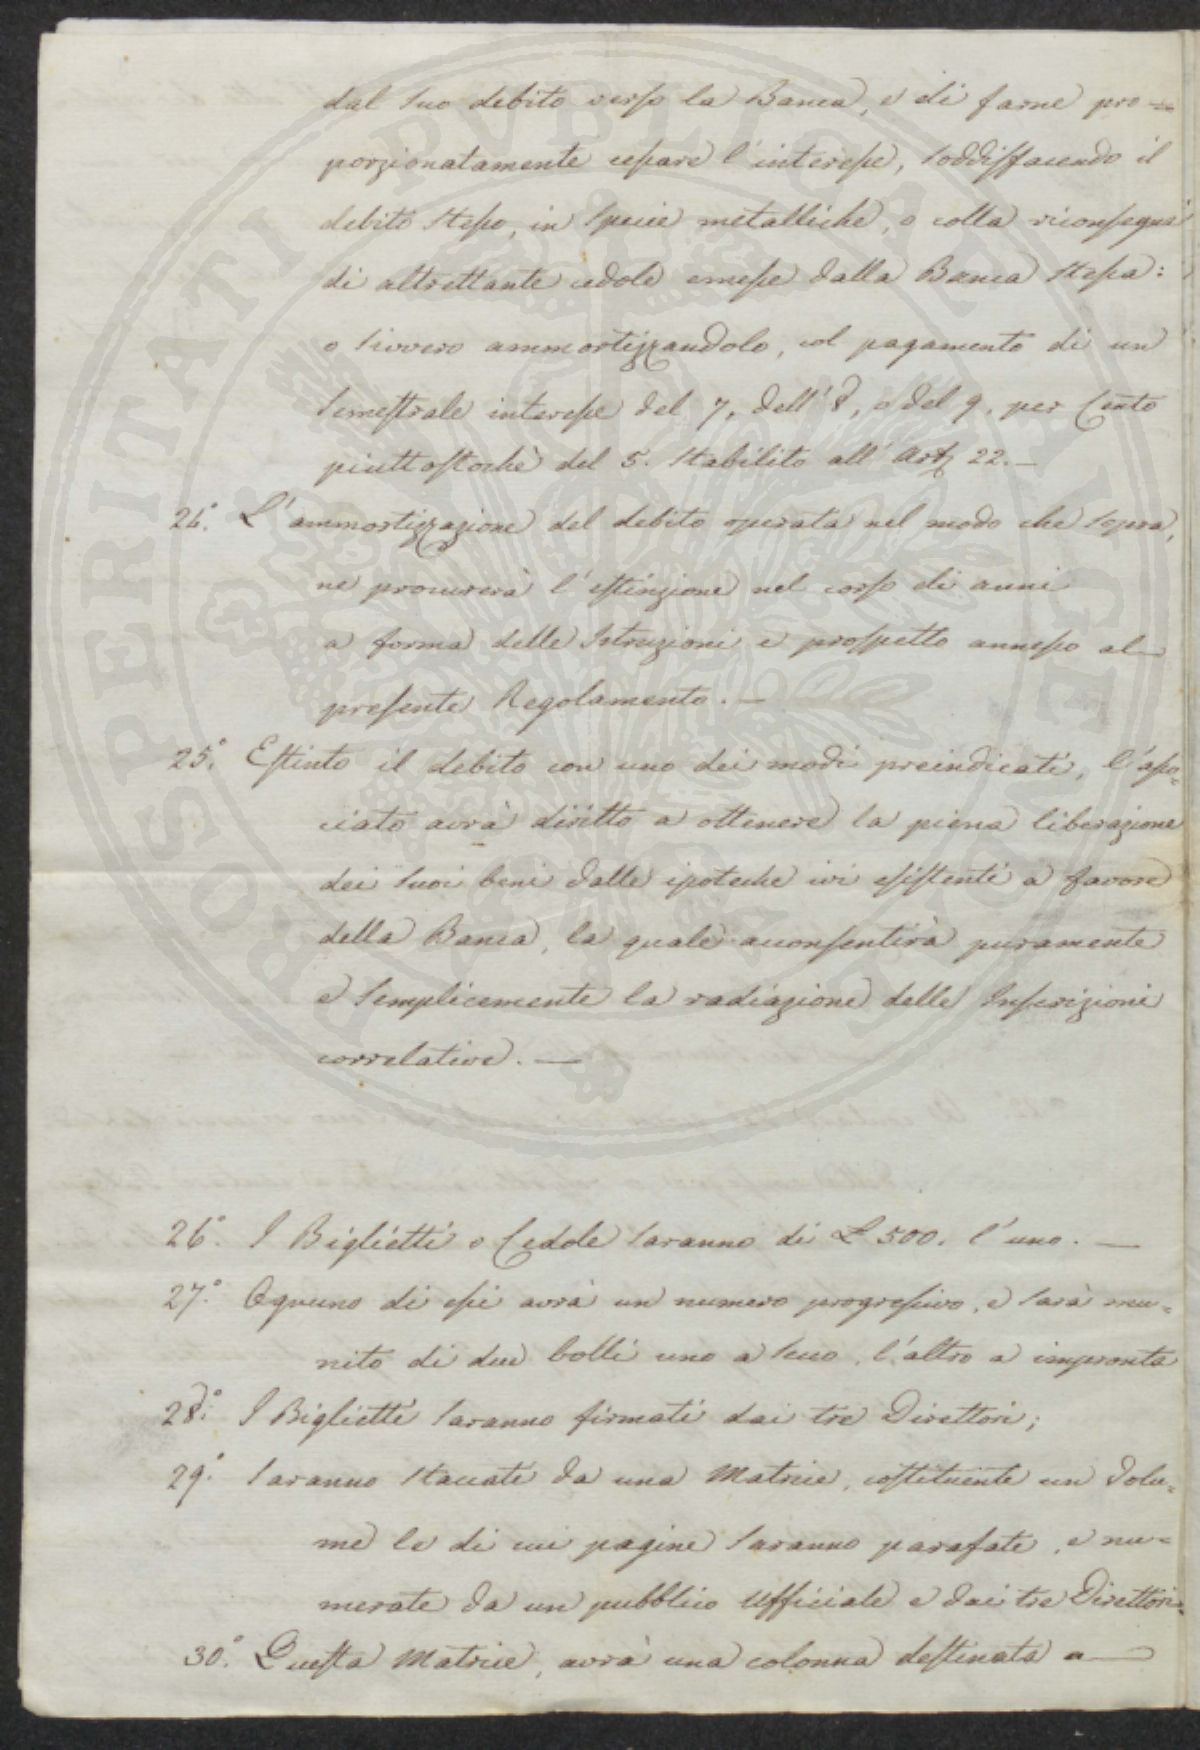 dal suo debito verso la Banca, e di farne pro-
porzionatamente cessare l'interesse, soddisfacendo il
debito stesso, in specie metalliche, o colla riconsegna
di altrettante cedole emesse dalla Banca stessa:
o sivvero ammortizzandolo, col pagamento di un
semestrale interesse del 7, dell'8, o del 9. per Cento
piuttostochè del 5. stabilito all'Art 22.—
24.° L'ammortizzazione del debito operata nel modo che sopra,
ne procurerà l'estinzione nel corso di anni
a forma delle Istruzioni e prospetto annesso al
presente Regolamento.—
25.° Estinto il debito con uno dei modi preindicati, l'asso=
ciato avrà diritto a ottenere la piena liberazione
dei suoi beni dalle ipoteche ivi esistenti a favore
della Banca, la quale acconsentirà puramente
e semplicemente la radiazione delle Inscrizioni
correlative.—
26.° I Biglietti o Cedole saranno di £ 500. l'uno.—
27.° Ognuno di essi avrà un numero progressivo, e sarà mu=
nito di due bolli uno a secco, l'altro a impronta
28.° I Biglietti saranno firmati dai tre Direttori;
29.° Saranno staccati da una Matrice, costituente un Volu=
me le di cui pagine saranno parafate, e nu=
merate da un pubblico Ufficiale e dai tre Direttori.
30.° Questa Matrice, avrà una colonna destinata a—
PROSPERITATI PVBLICAE AVGENDAE